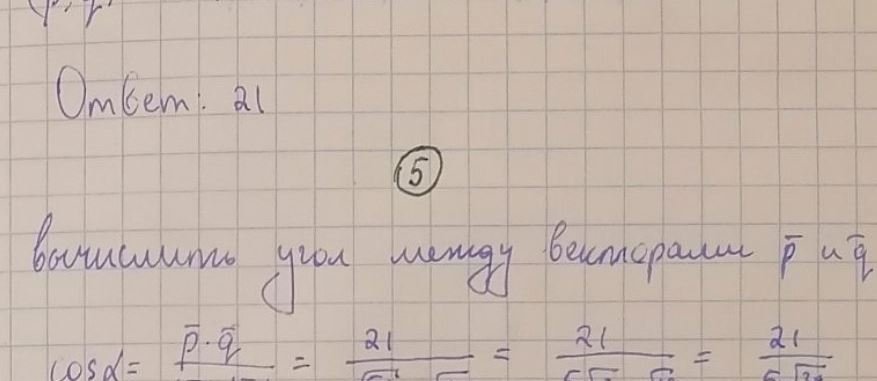 Ответ: 21
5
вычислить угол между векторами p̄ и q̄
cosα = p̄·q̄ = 21 = 21 = 21